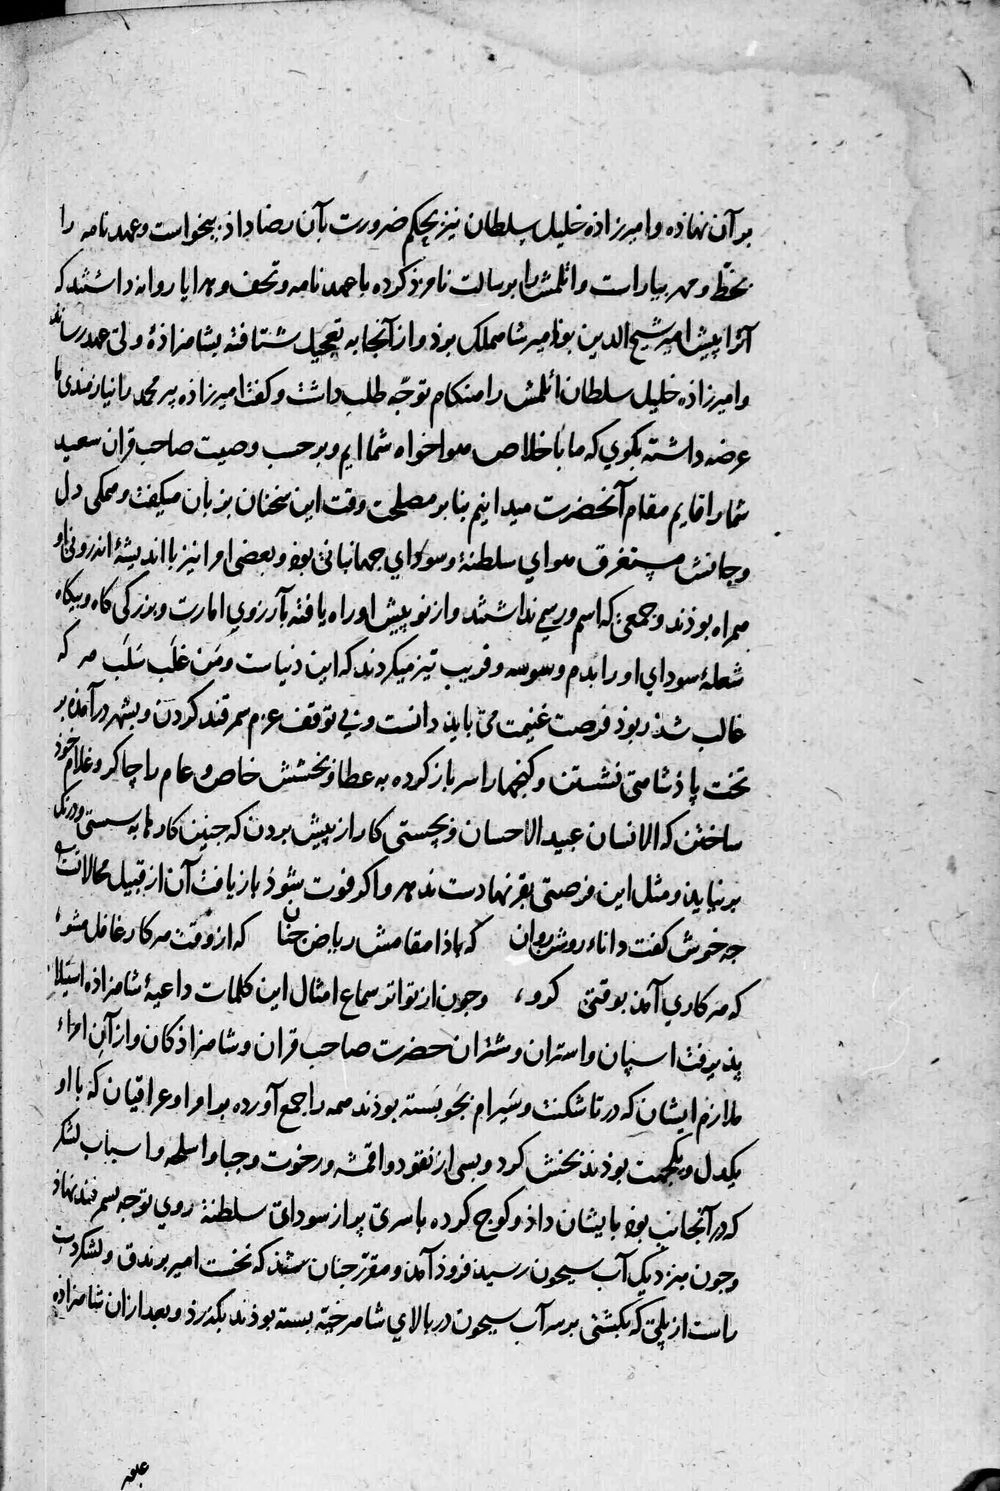 بر آن نهاده و امیرزاده خلیل سلطان نیز بحکم ضرورت بآن رضا داذ بیخواست و عهدنامه را
بخط و مهر بیاراست و اتلمش را برسالت نامزد کرده با عهدنامه و تحف و هدایا روانه داشتند که
آنرا پیش امیر شیخ الدین بوذ امیر شاهملک بوذ و از آنجا به تعجیل شتافته بشاهزاذهٔ ولی عهد رساند
و امیرزاذه خلیل سلطان اتلمش را هنکام توجّه طلب داشت و کفت امیرزاذه پیر محمد را نیازمندی ما
عرضه داشته بکوی که ما باخلاص هواخواه شماایم و بر حسب وصیت صاحب قران سعید
شما را قایم مقام آنحضرت میدانیم بنابر مصلحت وقت این سخنان بزبان میکفت و همکی دل
و جانش مستغرق هوای سلطنة و سودای جهانبانی بوذ و بعضی امرا نیز با اندیشهٔ اندرونی او
همراه بوذند و جمعی که اسم و رسمی نداشتند و از نو پیش او راه یافته بآرزوی امارت و بزرکی کاه و بیکاه
شعلهٔ سودای او را بدم وسوسه و فریب تیز میکردند که این دنیاست و مَن غلَب سَلَب هر که
غالب شد ربوذ فرصت غنیمت می باید دانست و بی توقف عزم سمرقند کردن و بشهر درآمذه بر
تخت پاذشاهی نشستن و کنجها را سر باز کرده به عطا و بخشش خاص و عام را چاکر و غلام خوذ
ساختن که الانسان عبید الاحسان و بچستی کار از پیش بردن که جنین کارها به سستی و درنک
برنیاید و مثل این فرصتی بقرنها دست ندهد و اکر فوت شوذ بازیافت آن از قبیل محالاتست
جه خوش کفت داناء روشن روان که باذا مقامش ریاض جنان که از وقت هر کار غافل مشو،
که هر کاری آمذ بوقتی کرو، و جون از تواتر سماع امثال این کلمات داعیهٔ شاهزاذه استیلا
پذیرفت اسپان و استران و شتران حضرت صاحب قران و شاهزاذکان و از آنِ امراء
ملازم ایشان که در تاشکنت و سَیرام بجَو بَسته بوذند همه را جمع آورده بر امرا و عراقیان که با او
یکدل و یکجهت بوذند بخش کرد و بسی از نقود و اقمشه و رخوت و جبا و اسلحه و اسباب لشکر
که در آنجانب بوذ بایشان داذ و کوج کرده با سری پر از سودای سلطنة روی توجه بسمرقند نهاذ
و جون بنزدیک آب سیحون رسید فروذ آمذ و مقرّر جنان شذ که نخست امیر برندق و لشکر دست
راست از پلی که بکشتی بر سر آب سیحون در بالای شاهرخیّه بسته بوذند بکذرذ و بعد ازان شاهزاده